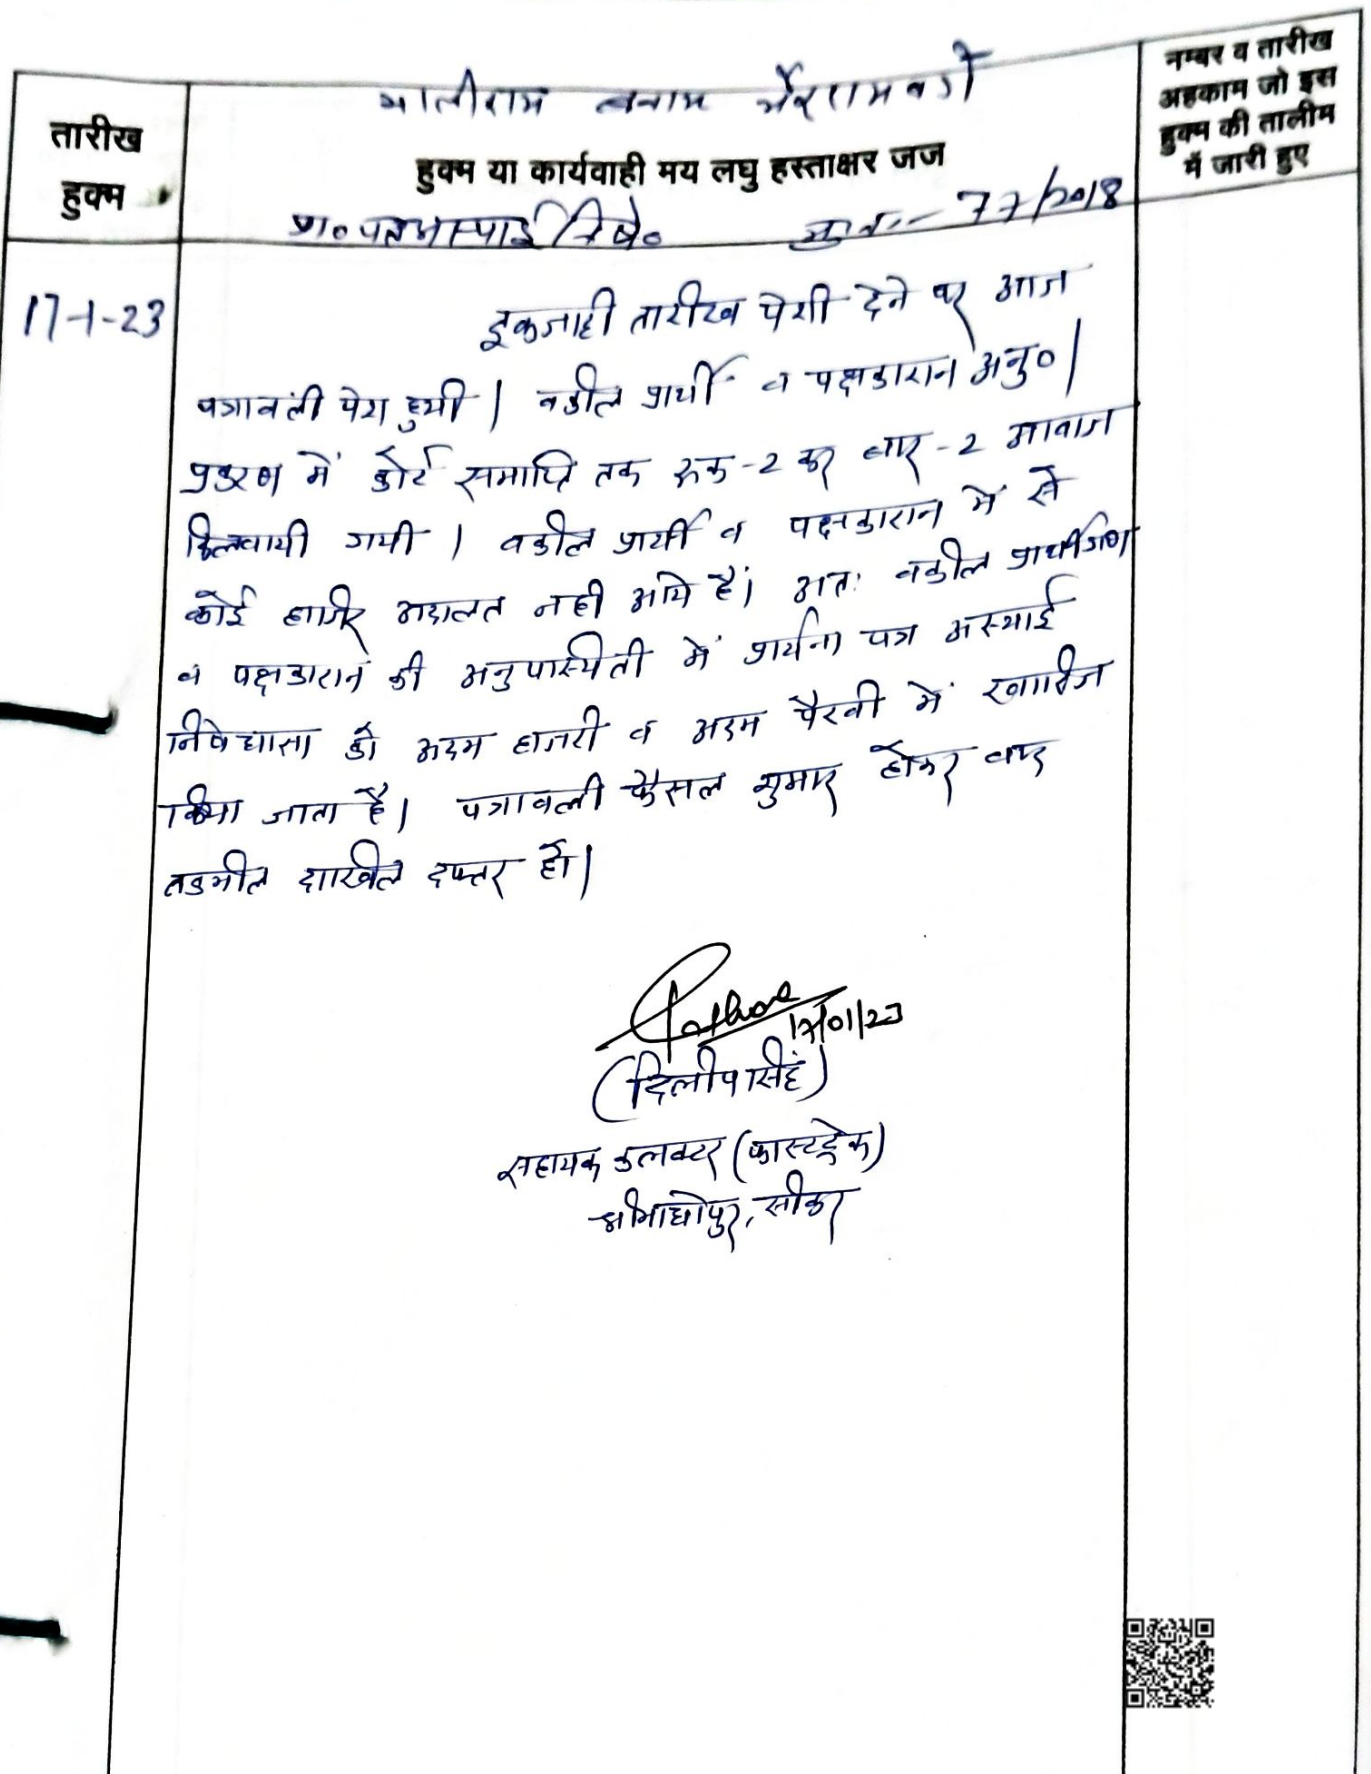 मालीराम बनाम भैरूराम वगै
तारीख
हुक्म
हुक्म या कार्यवाही मय लघु हस्ताक्षर जज
नम्बर व तारीख
अहकाम जो इस
हुक्म की तालीम
में जारी हुए
प्रा० पत्र अस्थाई निषे० मु०न०- 77/2018
17-1-23
इकजाही तारीख पेशी देने पर आज
पत्रावली पेश हुयी। वकील प्रार्थी व पक्षकारान अनु०।
प्रकरण में कोर्ट समाप्ति तक रूक-2 कर बार-2 आवाज
दिलवायी गयी। वकील प्रार्थी व पक्षकारान में से
कोई हाजिर अदालत नही आये हैं। अतः वकील प्रार्थीगण
व पक्षकारान की अनुपास्थिती में प्रार्थना पत्र अस्थाई
निषेधाज्ञा को अदम हाजरी व अदम पैरवी में खारिज
किया जाता है। पत्रावली फैसल शुमार होकर बाद
तकमील दाखिल दफ्तर हो।
17/01/23
(दिलीप सिंह)
सहायक कलक्टर (फास्टट्रेक)
श्रीमाधोपुर, सीकर